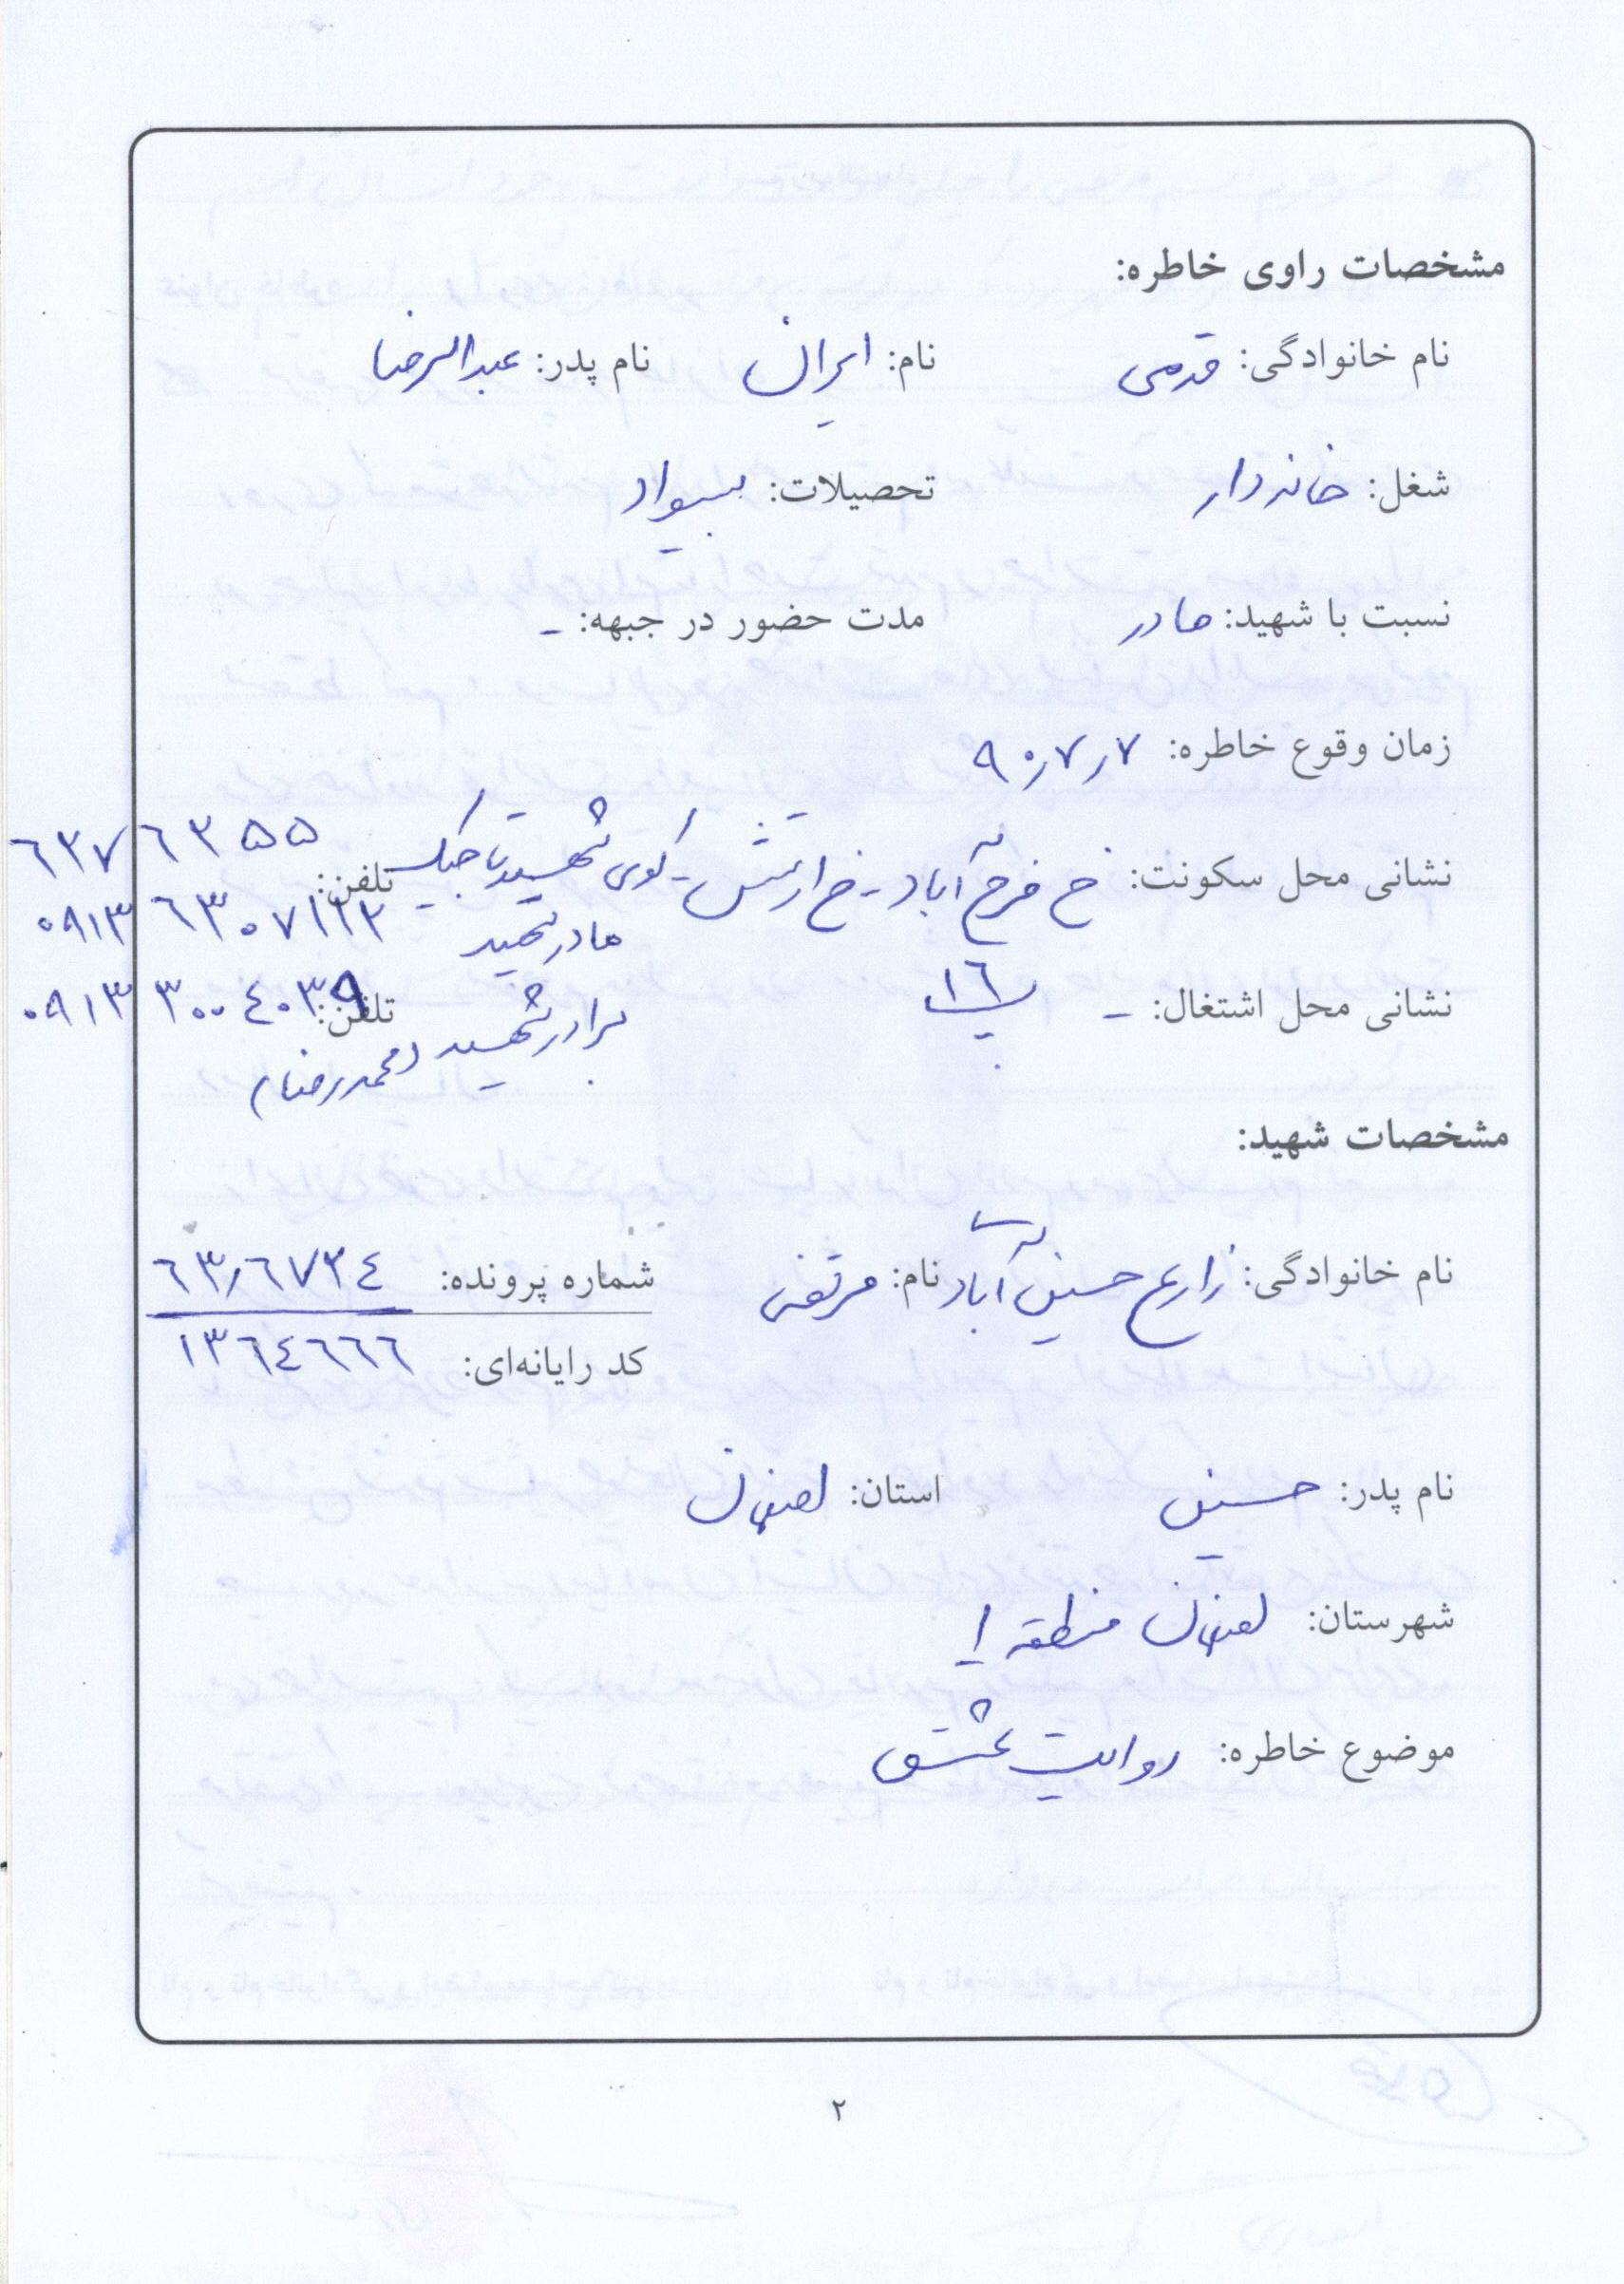 مشخصات راوی خاطره:
نام خانوادگی: قدمی نام: ایران نام پدر: عبدالرضا
شغل: خانه دار تحصیلات: بیسواد
نسبت با شهید: مادر مدت حضور در جبهه: -
زمان وقوع خاطره: ۹۰٫۷٫۷
نشانی محل سکونت: خ فرح آباد - خ ارتش - کوی شهید تلفن: ۶۳۷۶۳۵۵
مادر شهید ۰۹۱۳۶۳۰۷۱۲۲
۱۶
نشانی محل اشتغال: - تلفن: برادر شهید ۰۹۱۳۳۰۰۴۰۳۹
(محمدرضا)
مشخصات شهید:
نام خانوادگی: زارع حسین آبادی نام: مرتضی شماره پرونده: ۶۳٫۶۷۳۴
کد رایانه‌ای: ۱۳۶۴۶۶۶
نام پدر: حسین استان: اصفهان
شهرستان: اصفهان منطقه ۱
موضوع خاطره: روایت عشق
۲